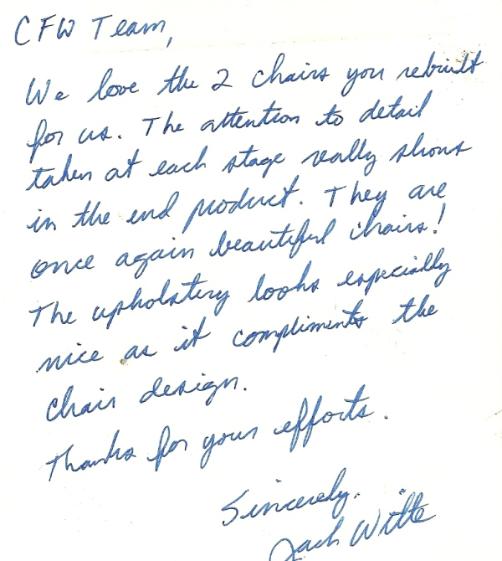 CFW Team,
We love the 2 chairs you rebuilt
for us. The attention to detail
taken at each stage really shows
in the end product. They are
once again beautiful chairs!
The upholstery looks especially
nice as it compliments the
chair design.
Thanks for your efforts.
Sincerely,
Jack Witte